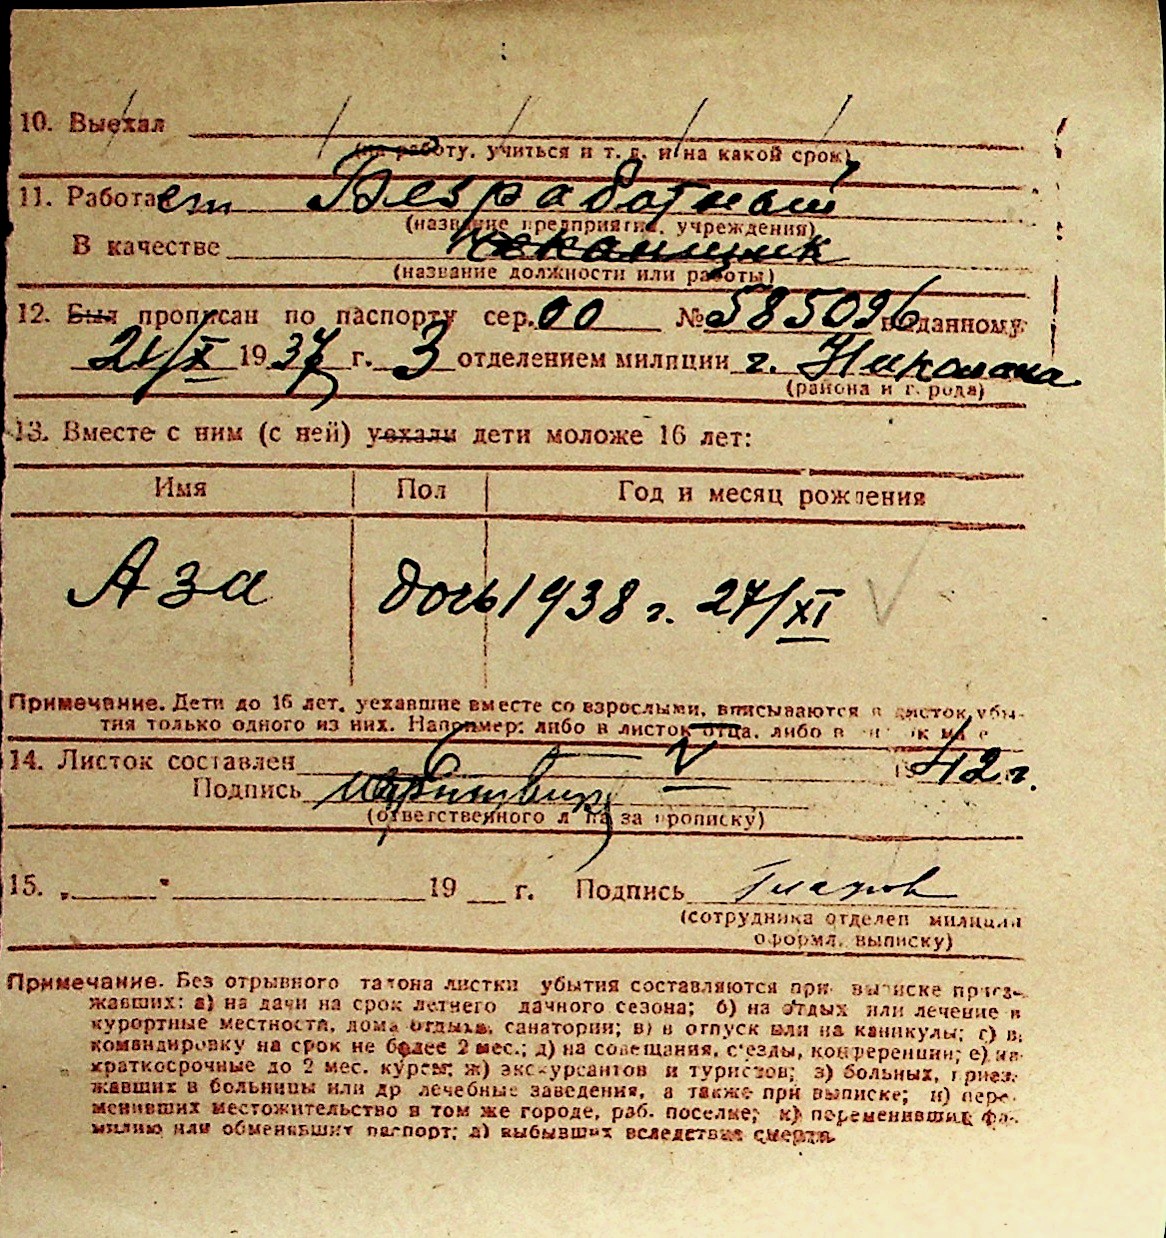 10. Выехал
(на работу, учиться и т. д. и на какой срок)
11. Работает Безработный
(название предприятия, учреждения)
В качестве
(название должности или работы)
12. Был прописан по паспорту сер. 00 № 585096 выданному
21/X 1937 г. 3 отделением милиции г. Николаева
(района и города)
13. Вместе с ним (с ней) уехали дети моложе 16 лет:
Имя Пол Год и месяц рождения
Аза дочь 1938 г. 27/XI
Примечание. Дети до 16 лет, уехавшие вместе со взрослыми, вписываются в листок убы-
тия только одного из них. Например: либо в листок отца, либо в
14. Листок составлен 6 V 1942 г.
Подпись
(ответственного лица за прописку)
15. „ " 19 г. Подпись
(сотрудника отделен милиции
оформл. выписку)
Примечание. Без отрывного талона листки убытия составляются при выписке приез-
жавших: а) на дачи на срок летнего дачного сезона; б) на отдых или лечение в
курортные местности, дома отдыха, санатории; в) в отпуск или на каникулы; г) в
командировку на срок не более 2 мес.; д) на совещания, с'езды, конференции; е) на
краткосрочные до 2 мес. курсы; ж) экскурсантов и туристов; з) больных, приез-
жавших в больницы или др лечебные заведения, а также при выписке; и) пере-
менивших местожительство в том же городе, раб. поселке; к) переменивших фа-
милию или обменявших паспорт; л) выбывших вследствие смерти.